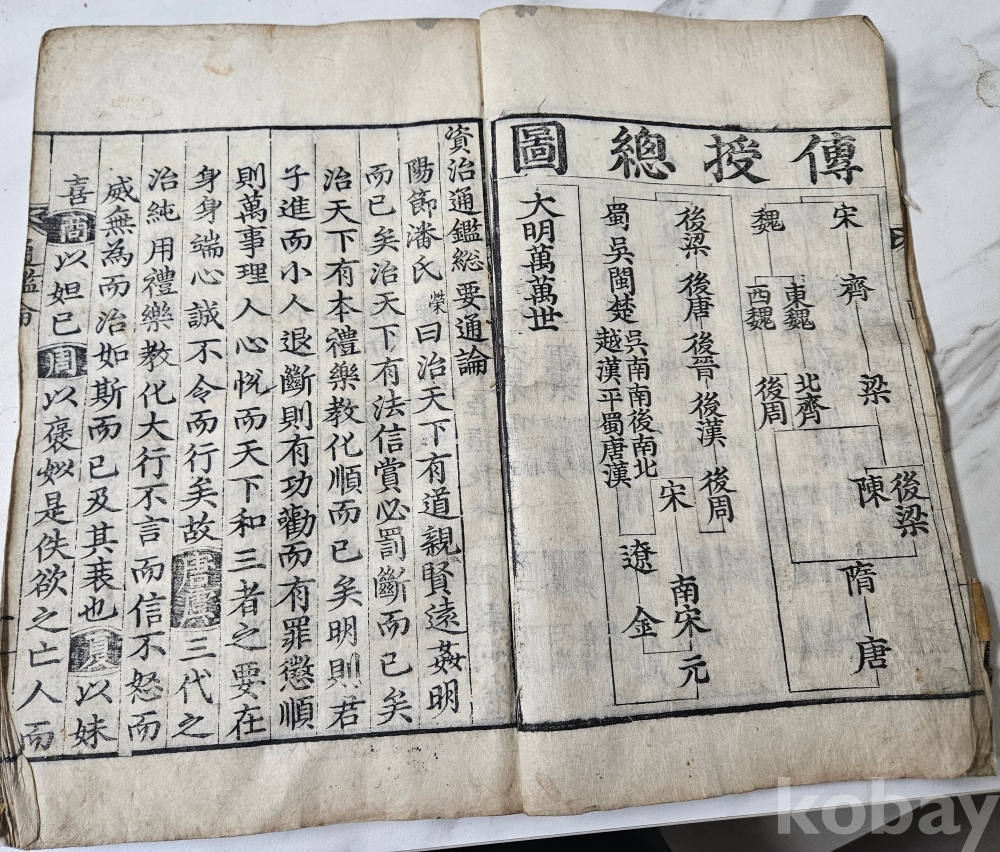 傳授總圖
宋 齊 梁 陳 後梁 隋 唐
魏 東魏 西魏 北齊 後周
後梁 後唐 後晉 後漢 後周
宋 南宋 元
蜀吳閩楚
吳南南後南北
越漢平蜀唐漢
遼 金
大明萬萬世
資治通鑑総要通論
陽節潘氏榮曰治天下有道親賢遠姦明
而已矣治天下有法信賞必罰斷而已矣
治天下有本禮樂教化順而已矣明則君
子進而小人退斷則有功勸而有罪懲順
則萬事理人心悅而天下和三者之要在
身身端心誠不令而行矣故唐虞三代之
治純用禮樂教化大行不言而信不怒而
威無為而治如斯而已及其衰也夏以妹
喜商以妲己周以褒姒是佚欲之亡人而
kobay